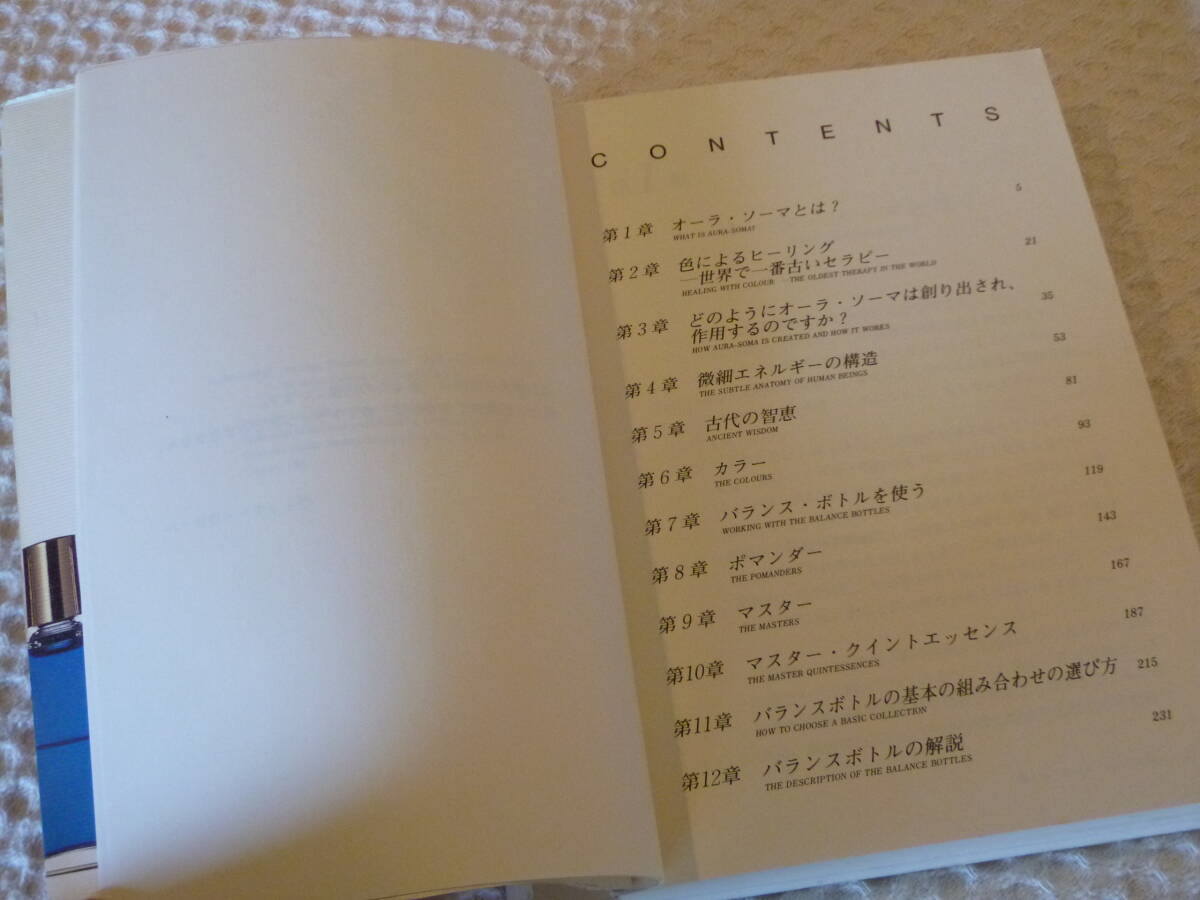 CONTENTS
第1章 オーラ・ソーマとは? 5
WHAT IS AURA-SOMA?
第2章 色によるヒーリング 21
―世界で一番古いセラピー
HEALING WITH COLOUR —THE OLDEST THERAPY IN THE WORLD
第3章 どのようにオーラ・ソーマは創り出され、 35
作用するのですか?
HOW AURA-SOMA IS CREATED AND HOW IT WORKS
第4章 微細エネルギーの構造 53
THE SUBTLE ANATOMY OF HUMAN BEINGS
第5章 古代の智恵 81
ANCIENT WISDOM
第6章 カラー 93
THE COLOURS
第7章 バランス・ボトルを使う 119
WORKING WITH THE BALANCE BOTTLES
第8章 ポマンダー 143
THE POMANDERS
第9章 マスター 167
THE MASTERS
第10章 マスター・クイントエッセンス 187
THE MASTER QUINTESSENCES
第11章 バランスボトルの基本の組み合わせの選び方 215
HOW TO CHOOSE A BASIC COLLECTION
第12章 バランスボトルの解説 231
THE DESCRIPTION OF THE BALANCE BOTTLES